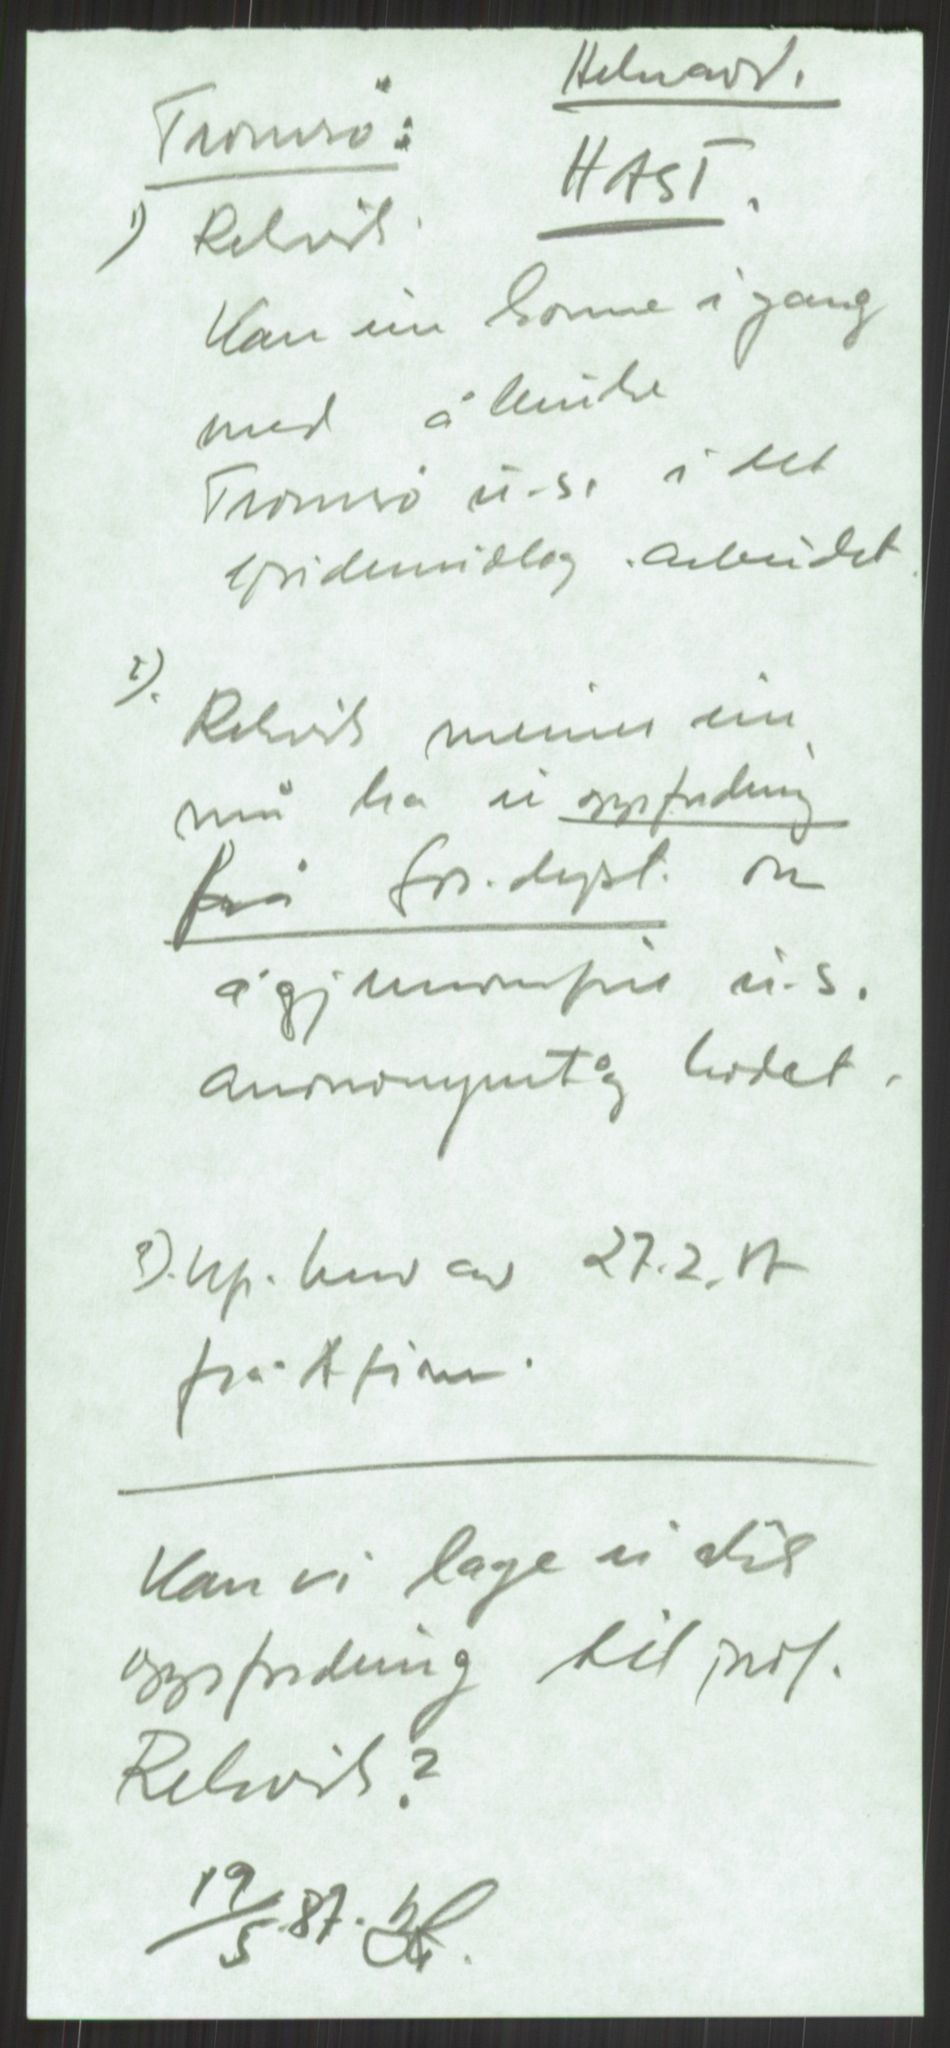 Helseavd.
Tromsø:
HAST.
1) Rekvik.
Kan ein komme i gang
med å bruke
Tromsø u.s. i det
epidemiolog. arbeidet.
2). Rekvik meiner ein
må ha ei oppfordring
frå fors.dept. om
å gj u.s.
anonomymt og kodet.
3). brev av 27.2.87
frå
Kan vi lage ei slik
oppfordring til prof.
Rekvik?
19/5.87.